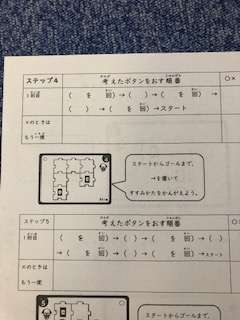 ステップ4 考えたボタンをおす順番 ○×
かんが じゅんばん
1回目 ( を 回)→( )→( を 回)→
( )→( を 回)→スタート
×のときは
もう一度
スタートからゴールまで、
→を書いて
すすみかたをかんがえよう。
ステップ5 考えたボタンをおす順番
かんが じゅんばん
1回目 ( を 回)→( )→( )→( )→
( を 回)→( )→( を 回)→スタート
×のときは
もう一度
スタートからゴールまで、